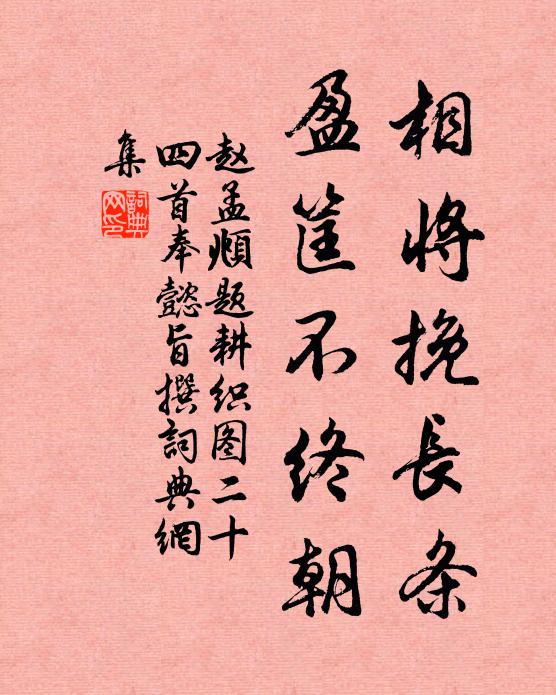 相將挽長条
盈筐不终朝
赵孟頫题耕织图二十
四首奉懿旨撰詞典網
集
詞典
网印